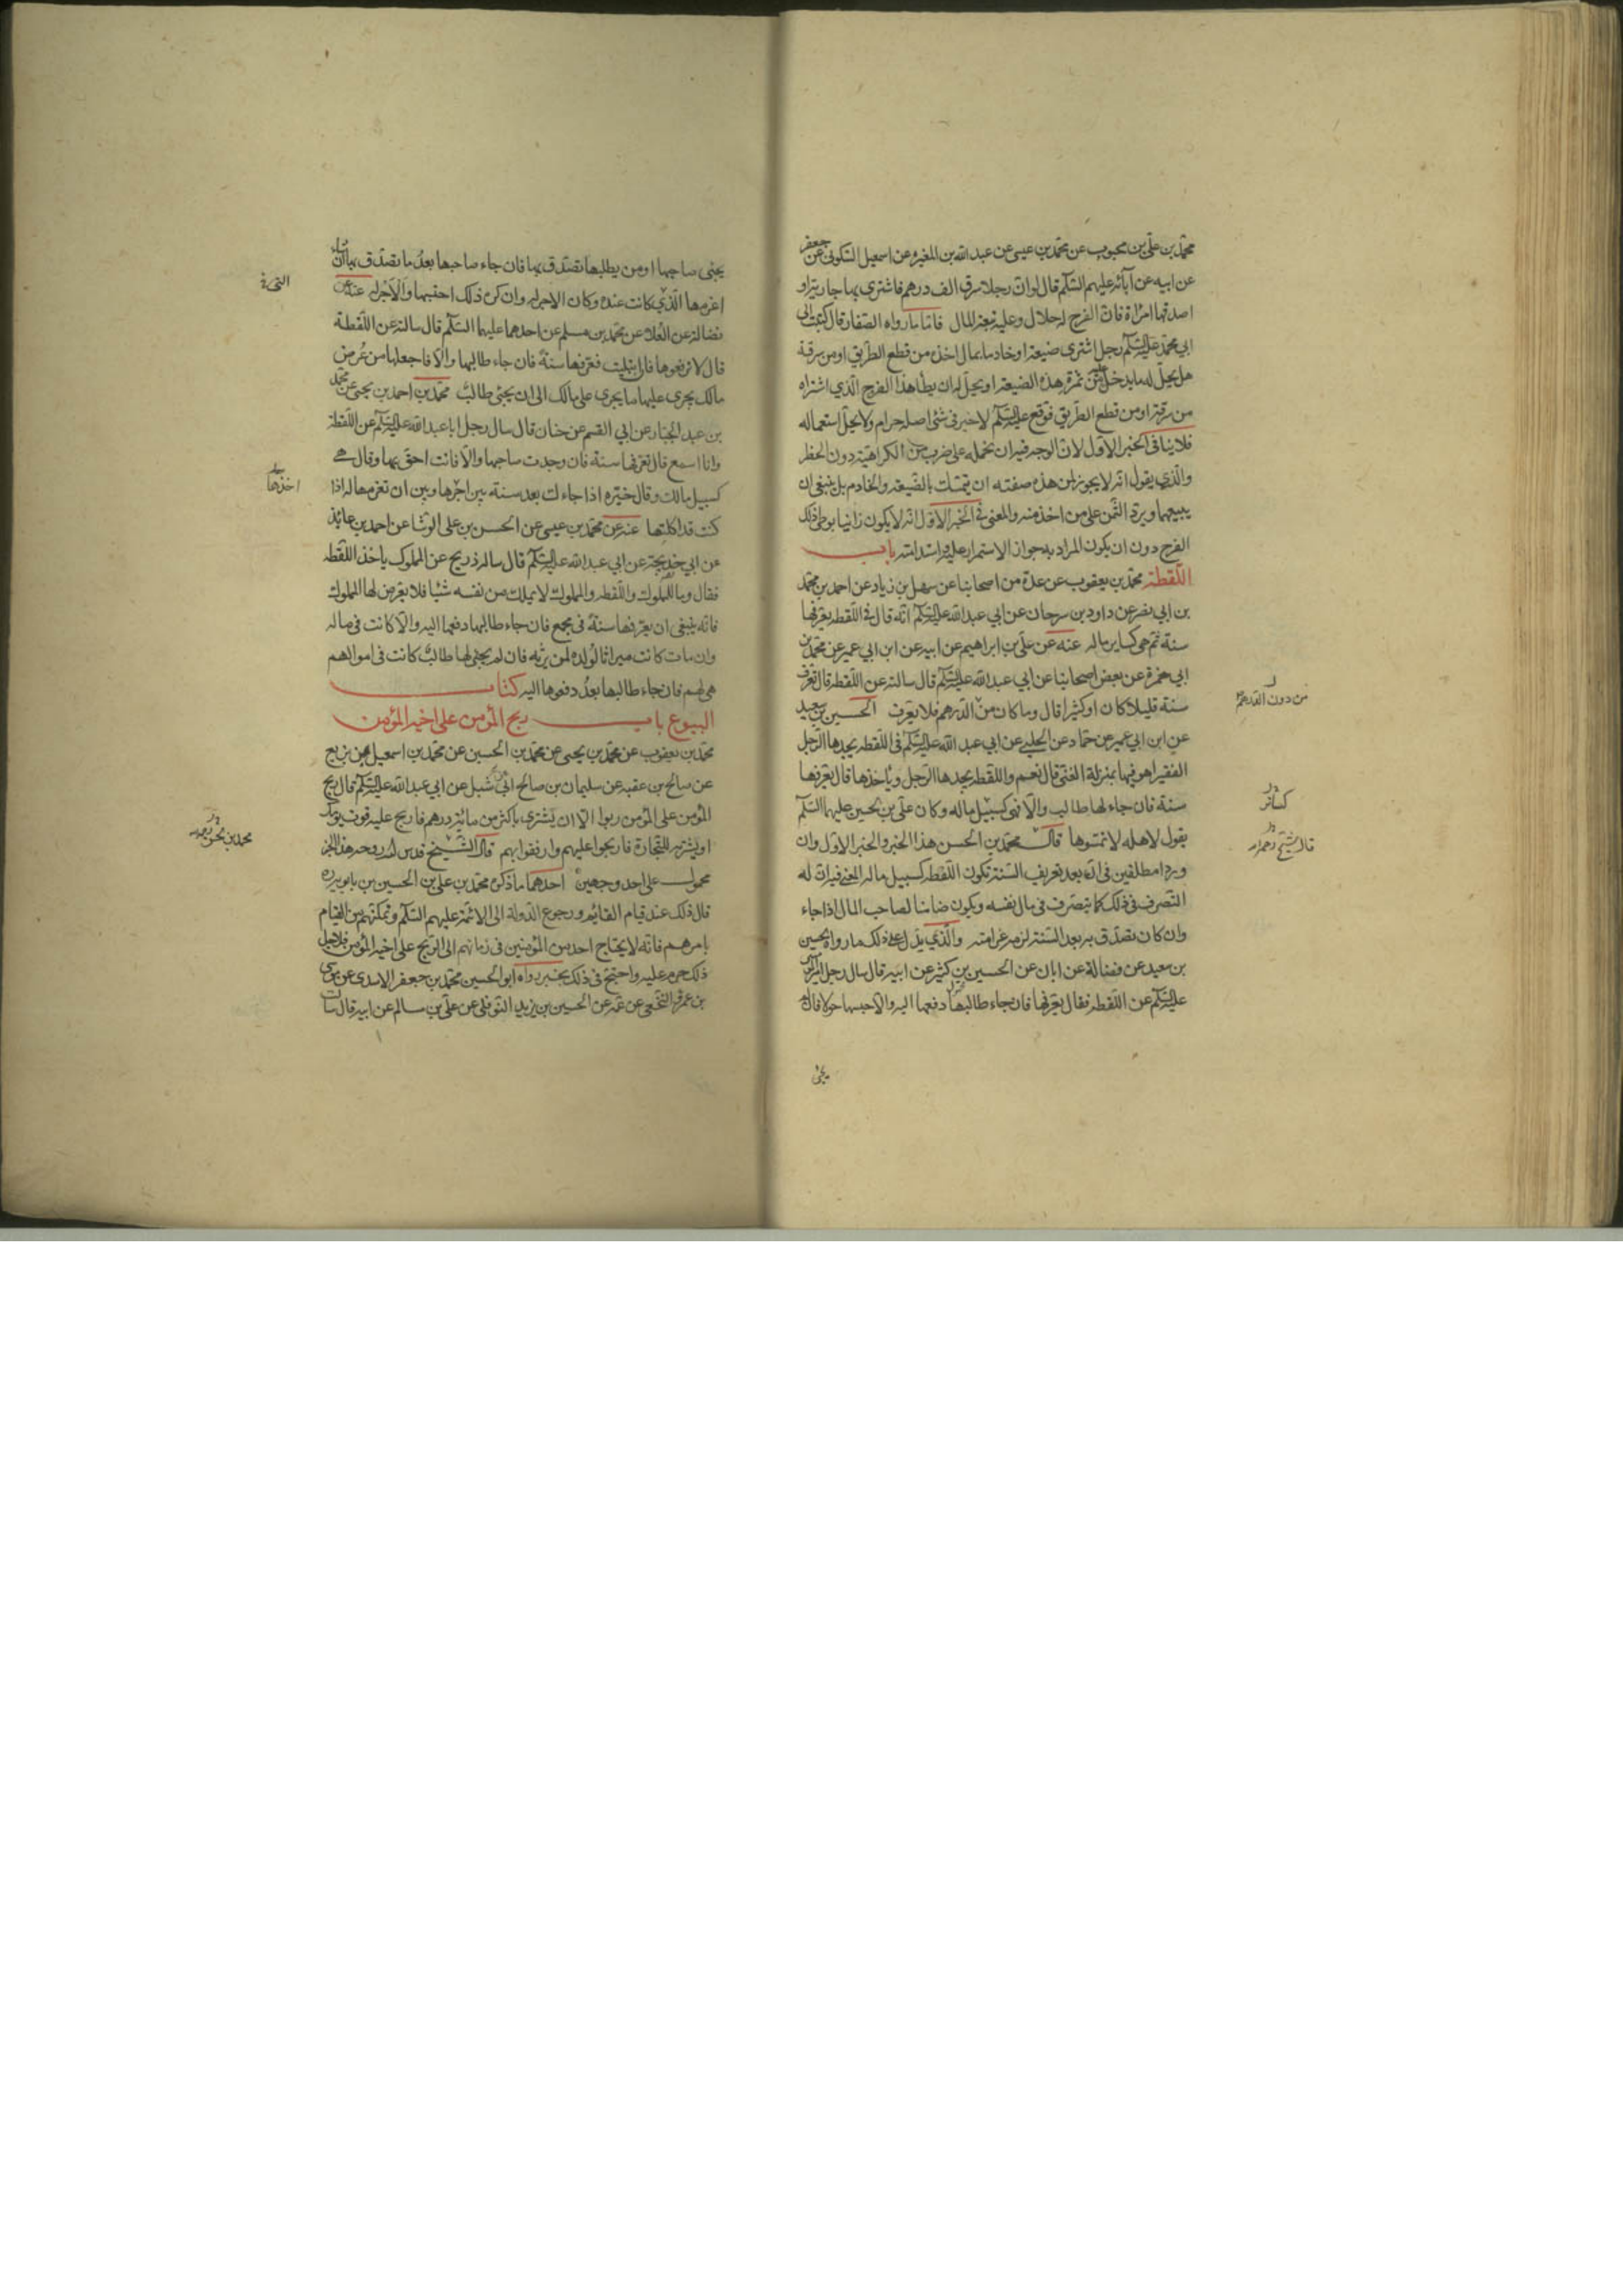 محمد بن علي بن محبوب عن محمد بن عيسى عن عبد الله بن المغيره عن اسمعيل السكوني عن جعفر
عن ابيه عن آبائه عليهم السلام قال لو ان رجلا سرق الف درهم فاشترى بها جارية او
اصدقها امراة فان الفرج له حلال وعليه تبعة المال فاما ما رواه الصفار قال كتبت الى
ابي محمد عليه السلام رجل اشترى ضيعة او خادما بمال اخذه من قطع الطريق او من سرقة
هل يحل له ما يدخل عليه من ثمرة هذه الضيعة او يحل له ان يطا هذا الفرج الذي اشتراه
من سرقة او من قطع الطريق فوقع عليه السلام لا خير في شئ اصله حرام ولا يحل استعماله
فلا ينافى الخبر الاول لان الوجه فيه ان نحمله على ضرب من الكراهية دون الحظر
والذي يقول انه لا يجوز لمن هذه صفته ان يتملك بالضيعة والخادم بل ينبغي ان
يبيعهما ويرد الثمن على من اخذ منه والمعنى في الخبر الاول انه لا يكون زانيا بوطى ذلك
الفرج دون ان يكون المراد به جواز الاستمرار عليه واستدامته باب
اللقطة محمد بن يعقوب عن عدة من اصحابنا عن سهل بن زياد عن احمد بن محمد
بن ابي نصر عن داود بن سرحان عن ابي عبد الله عليه السلام انه قال في اللقطه يعرفها
سنة ثم هي كساير ماله عنه عن علي بن ابراهيم عن ابيه عن ابن ابي عمير عن محمد بن
ابي حمزة عن بعض اصحابنا عن ابي عبد الله عليه السلام قال سالته عن اللقطه قال تعرف
سنة قليلا كان او كثيرا قال وما كان من الدرهم فلا يعرف الحسين بن سعيد
من دون الدرهم
عن ابن ابي عمير عن حماد عن الحلبي عن ابي عبد الله عليه السلام في اللقطه يجدها الرجل
الفقير اهو فيها بمنزلة الغني قال نعم واللقطه يجدها الرجل وياخذها قال يعرفها
سنة فان جاء لها طالب والا فهى كسبيل ماله وكان علي بن الحسين عليهما السلام
كسائر
يقول لاهله لا تمسوها قال محمد بن الحسن هذا الخبر والخبر الاول وان
قال الشيخ رحمه الله
وردا مطلقين في ان بعد تعريف السنة تكون اللقطه كسبيل ماله المعنى فيه ان له
التصرف في ذلك كما يتصرف في مال نفسه ويكون ضامنا لصاحب المال اذا جاء
وان كان تصدق به بعد السنة لزمه غرامته والذي يدل على ذلك ما رواه الحسين
بن سعيد عن فضالة عن ابان عن الحسين بن كثير عن ابيه قال سال رجل امير المؤمنين
عليه السلام عن اللقطه فقال يعرفها فان جاء طالبها دفعها اليه والا حبسها حولا فان لم
يجئ
يجئ صاحبها او من يطلبها تصدق بها فان جاء صاحبها بعد ما تصدق بها ان شاء
اغرمها الذي كانت عنده وكان الاجر له وان كره ذلك احتسبها والاجر له عنه عن
فضالة عن العلا عن محمد بن مسلم عن احدهما عليهما السلام قال سالته عن اللقطة
قال لا ترفعوها فان ابتليت فعرفها سنة فان جاء طالبها والا فاجعلها من عرض
مالك يجري عليها ما يجري على مالك الى ان يجئ طالب محمد بن احمد بن يحيى عن محمد
بن عبد الجبار عن ابي القسم عن حنان قال سال رجل ابا عبد الله عليه السلام عن اللقطة
وانا اسمع قال تعرفها سنة فان وجدت صاحبها والا فانت احق بها وقال هي
كسبيل مالك وقال خيره اذا جاءك بعد سنة بين اجرها وبين ان تغرمها له اذا
اخذها
كنت قد اكلتها عنه عن محمد بن عيسى عن الحسن بن علي الوشا عن احمد بن عائذ
عن ابي خديجة عن ابي عبد الله عليه السلام قال ساله ذريح عن المملوك ياخذ اللقطه
فقال وما للمملوك واللقطه والمملوك لا يملك من نفسه شيئا فلا يعرض لها المملوك
فانه ينبغي ان يعرفها سنة في مجمع فان جاء طالبها دفعها اليه والا كانت في ماله
وان مات كانت ميراثا لولده لمن يرثه فان لم يجئ لها طالب كانت في اموالهم
هي لهم فان جاء طالبها بعد دفعوها اليه كتاب
البيوع باب ربح المؤمن على اخيه المؤمن
محمد بن يعقوب عن محمد بن يحيى عن محمد بن الحسين عن محمد بن اسمعيل بن بزيع
عن صالح بن عقبه عن سليمان بن صالح ابي شبل عن ابي عبد الله عليه السلام قال ربح
المؤمن على المؤمن ربوا الا ان يشترى باكثر من مائة درهم فاربح عليه قوت يومك
او يشتريه للتجارة فاربحوا عليهم وارفقوا بهم قال الشيخ قدس الله روحه هذا الخبر
محمد بن الحسن رحمه الله
محمول على احد وجهين احدهما ما ذكره محمد بن علي بن الحسين بن بابويه ره
قال ذلك عند قيام القائم ورجوع الدولة الى الائمة عليهم السلام وتمكنهم من القيام
بامرهم فانه لا يحتاج احد من المؤمنين في زمانهم الى الربح على اخيه المؤمن فلاجل
ذلك حرم عليه واحتج في ذلك بخبر رواه ابو الحسين محمد بن جعفر الاسدي عن موسى
بن عمران النخعي عن عمه عن الحسين بن يزيد النوفلي عن علي بن سالم عن ابيه قال سالت